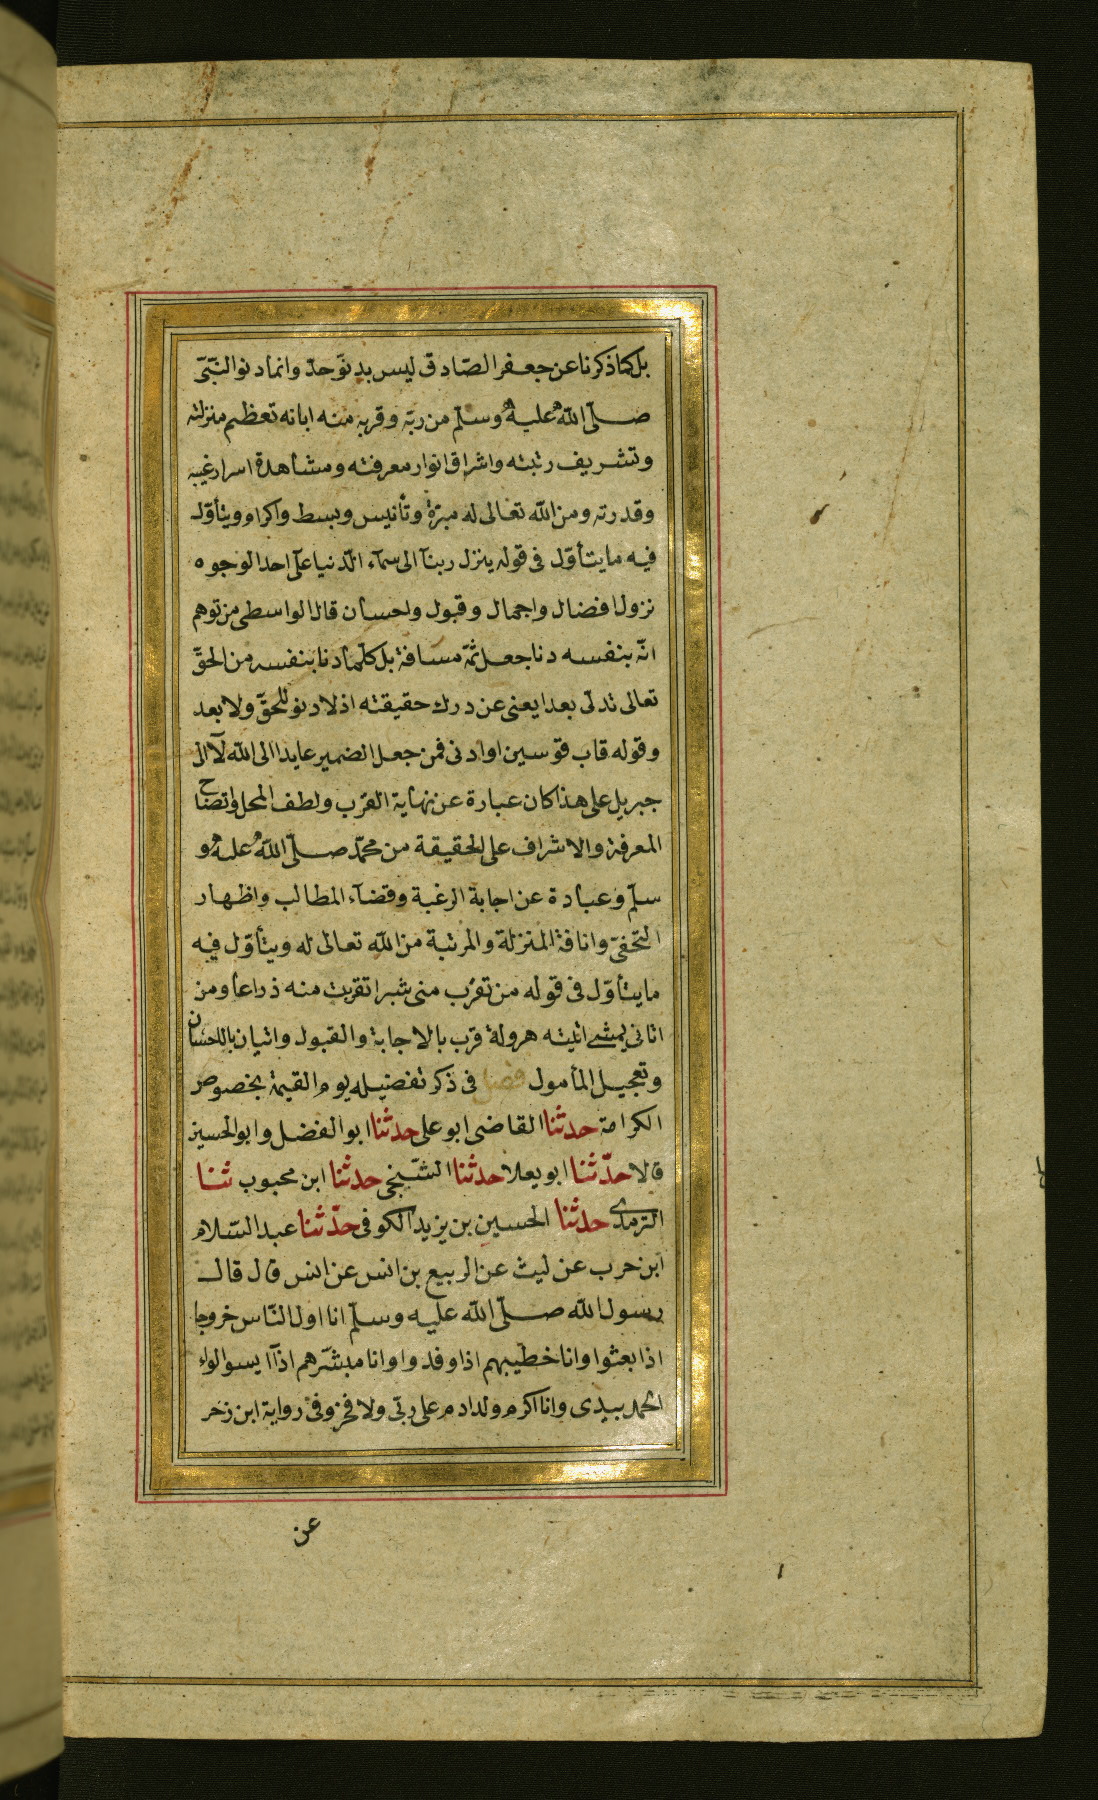 بل كما ذكرنا عن جعفر الصّادق ليس بدنوّ حدّ وانما دنو النّبيّ
صلّى الله عليه وسلّم من ربّه وقربه منه ابانه تعظيم منزلته
وتشريف رتبته واشراق انوار معرفته ومشاهدة اسرار غيبه
وقدرته ومن الله تعالى له مبرّة وتأنيس وبسط واكرام ويتأوّل
فيه ما يتأوّل فى قوله ينزل ربنا الى سمآء الدّنيا على احد الوجوه
نزول افضال واجمال وقبول واحسان قال الواسطى من توهم
انّه بنفسه دنا جعل ثمّ مسافة بل كلّما دنا بنفسه من الحقّ
تعالى تدلّى بعدا يعنى عن درك حقيقته اذ لا دنو للحقّ ولا بعد
وقوله قاب قوسين او ادنى فمن جعل الضمير عايدا الى الله لآ الى
جبريل على هذا كان عبارة عن نهاية القرب ولطف المحل واتضاح
المعرفة والاشراف على الحقيقة من محمّد صلّى الله عليه و
سلّم وعبادة عن اجابة الرغبة وقضآء المطالب واظهار
التحفىّ وانافة المنزلة والمرتبة من الله تعالى له ويتأوّل فيه
ما يتأوّل فى قوله من تقرّب منى شبرا تقربت منه ذراعا ومن
اتانى يمشى اتيته هرولة قرب بالاجابة والقبول واتيان بالاحسان
وتعجيل المأمول فصل فى ذكر تفضيله يوم القيمة بخصوص
الكرامة حدثنا القاضى ابو على حدثنا ابو الفضل وابو الحسين
قالا حدّثنا ابو يعلا حدثنا الشّيخى حدثنا ابن محبوب ثنا
الترمذى حدثنا الحسين بن يزيد الكوفى حدّثنا عبد السّلام
ابن حرب عن ليث عن الربيع بن انس عن انس قال قال
رسول الله صلّى الله عليه وسلّم انا اول النّاس خروجا
اذا بعثوا وانا خطيبهم اذا وفدوا وانا مبشّرهم اذآ ايسوا لواء
الحمد بيدى وانا اكرم ولد ادم على ربّى ولا فخر وفى رواية ابن زحر
عن